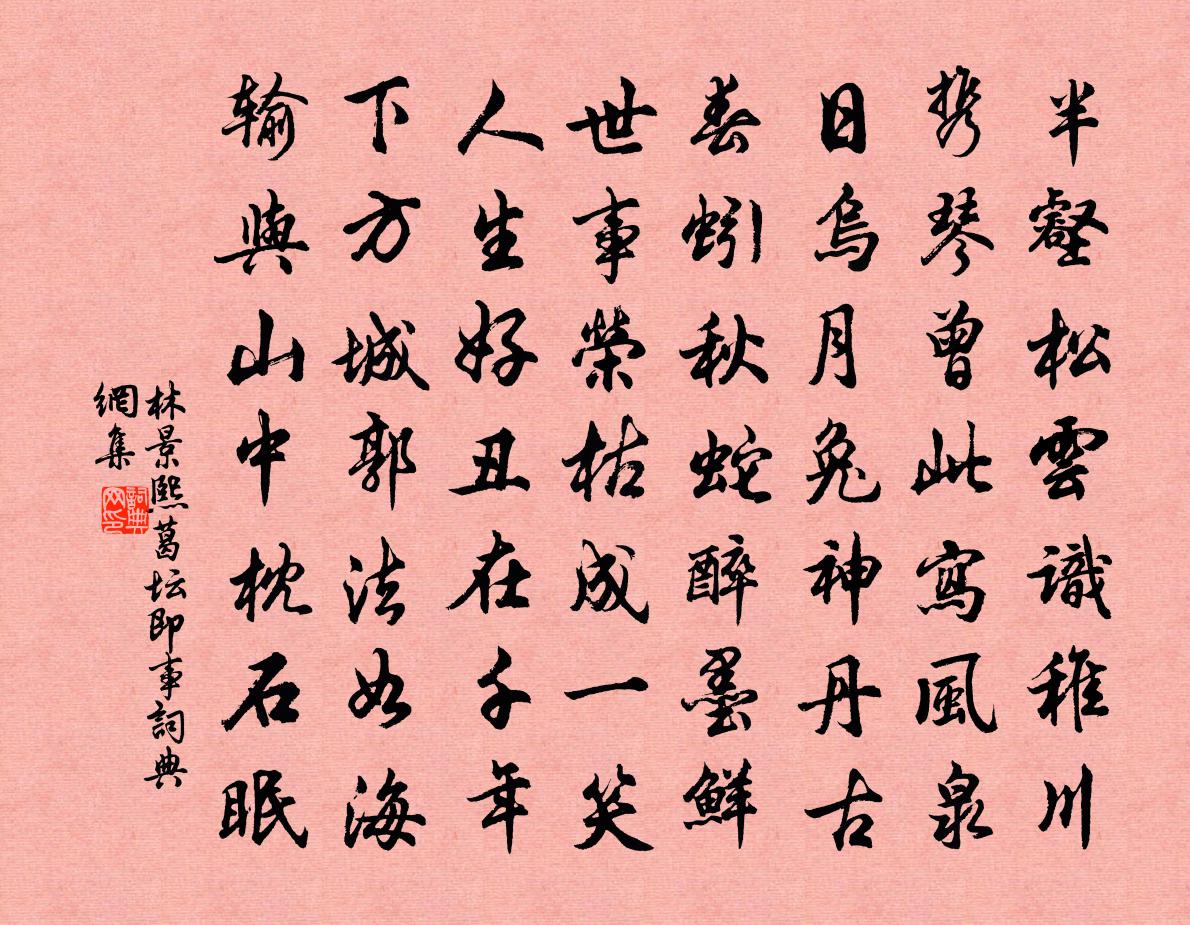 半壑松雲識稚川
携琴曾此寫風泉
日烏月兔神丹古
春蚓秋蛇醉墨鮮
世事榮枯成一笑
人生好丑在千年
下方城郭法如海
輸與山中枕石眠
林景熙葛坛即事詞典
網集
詞典
网印